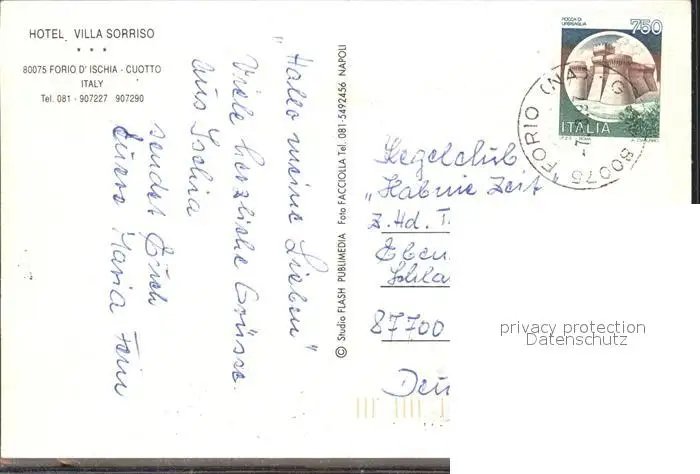 HOTEL VILLA SORRISO
★ ★ ★
80075 FORIO D' ISCHIA - CUOTTO
ITALY
Tel. 081 - 907227 907290
"Hallo meine Lieben"
Viele herzliche Grüsse
aus Ischia
sendet Euch
Eure Maria
© Studio FLASH PUBLIMEDIA Foto FACCIOLLA Tel. 081-5492456 NAPOLI
ROCCA DI
URBISAGLIA
750
ITALIA
80075 FORIO (NA)
Kegelclub
"Habnie Zeit"
z. Hd.
87700
privacy protection
Datenschutz